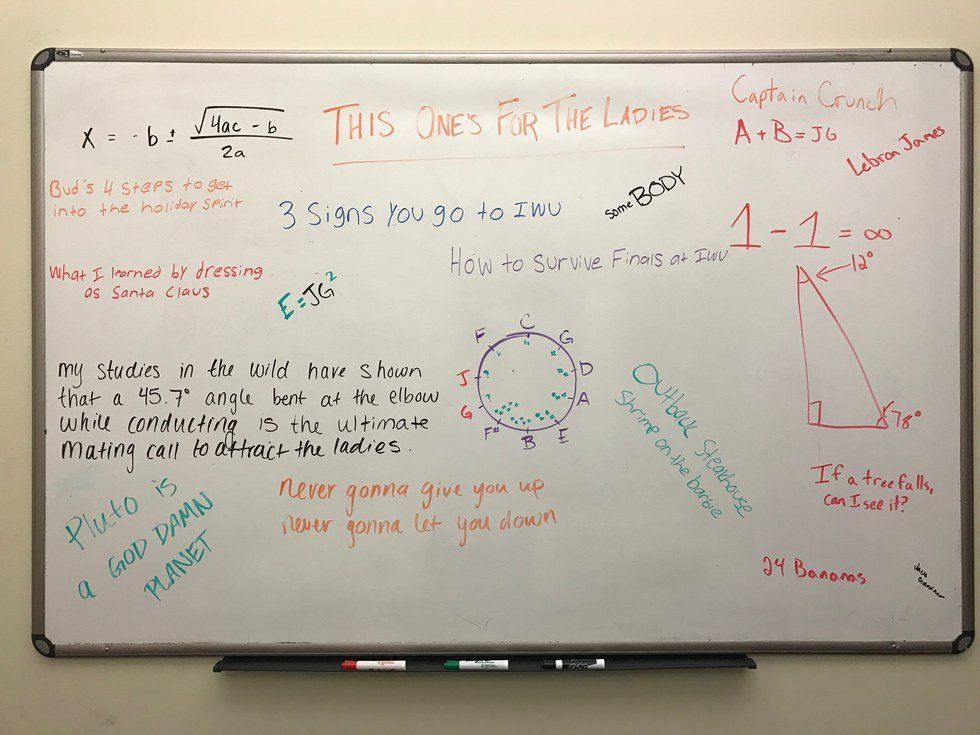 x = -b ± √4ac - b / 2a
THIS ONE'S FOR THE LADIES
Captain Crunch
A + B = JG
Lebron James
Bud's 4 steps to get
into the holiday spirit
3 Signs You go to IWU
some BODY
1 - 1 = ∞
How to Survive Finals at IWU
12°
What I learned by dressing
as Santa Claus
E = JG²
C
G
D
A
E
B
F#
G
J
F
my studies in the wild have shown
that a 45.7° angle bent at the elbow
while conducting is the ultimate
mating call to attract the ladies.
Outback Steakhouse
Shrimp on the barbie
78°
Pluto is
a GOD DAMN
PLANET
never gonna give you up
never gonna let you down
If a tree falls,
can I see it?
24 Bananas
Jack